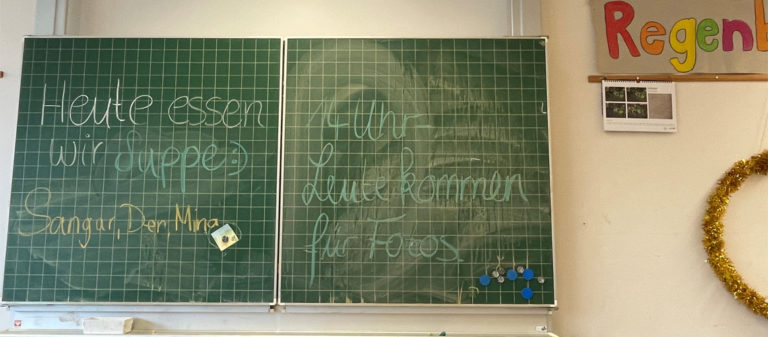 Heute essen
wir Suppe:)
Sangar, Der, Mina
14 Uhr-
Leute kommen
für Fotos.
Regenb